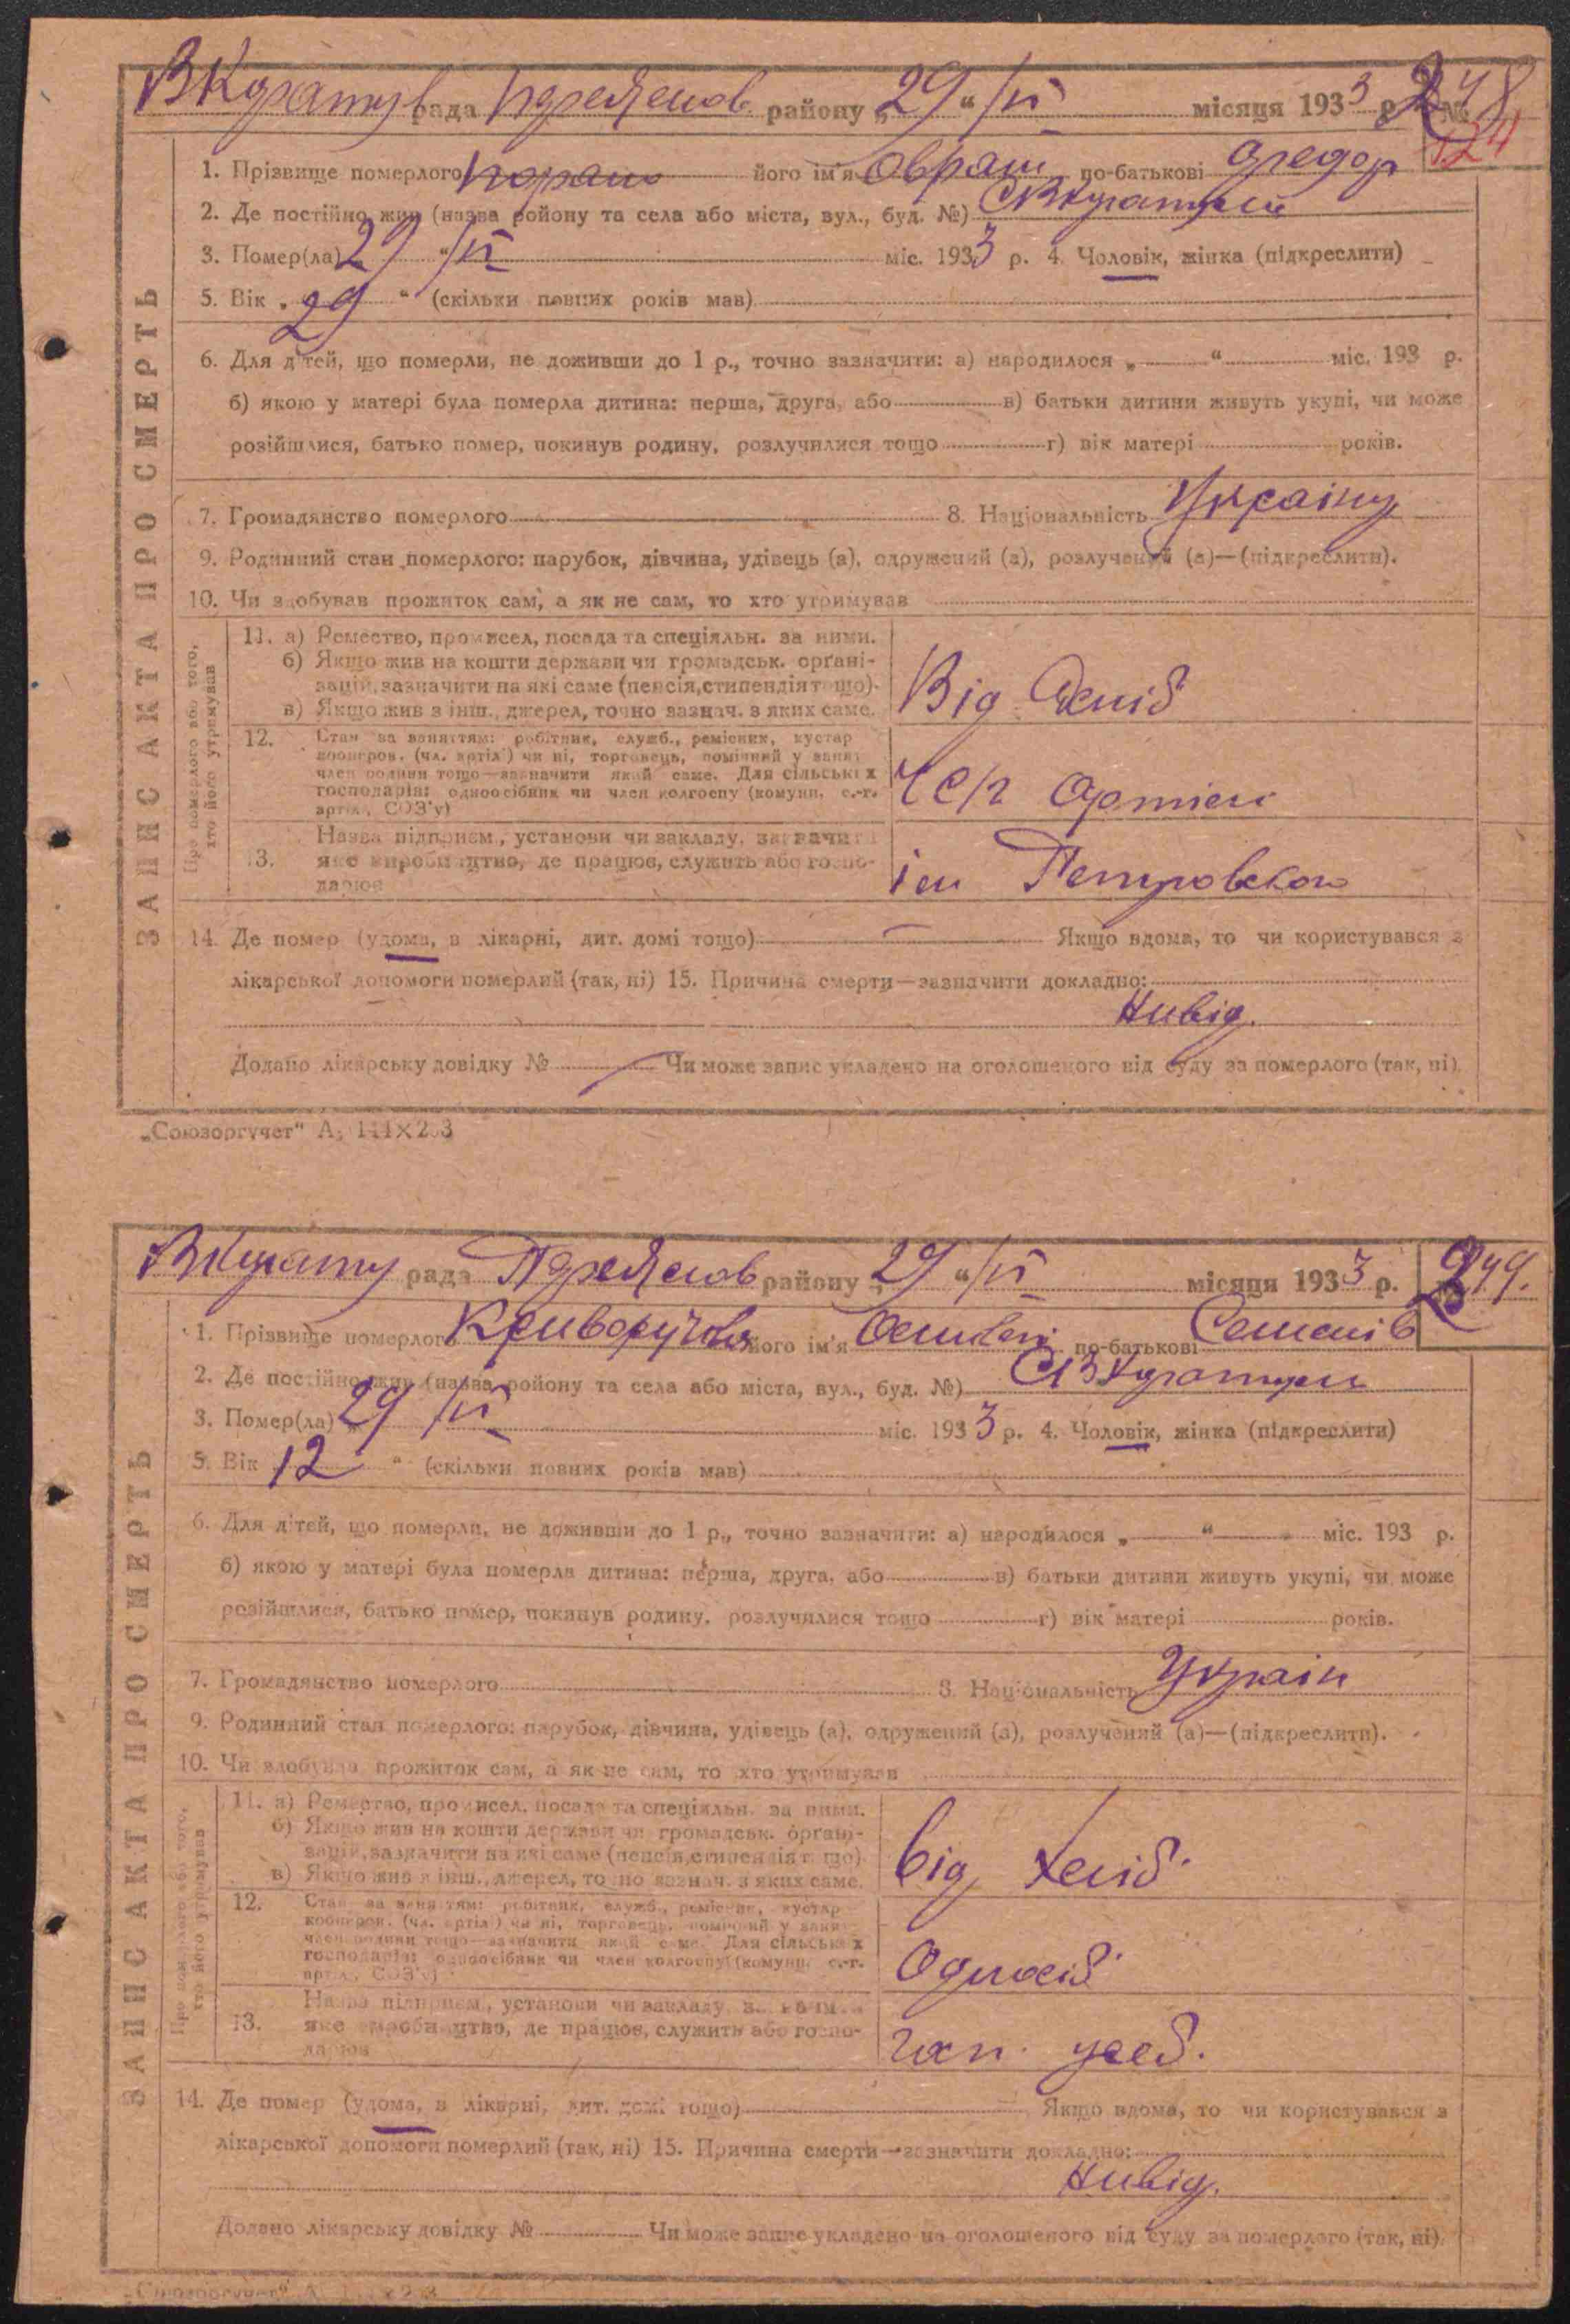 ВКаратул рада Переяслов району „29“ /VI місяця 1933 р. № 248
124
ЗАПИС АКТА ПРО СМЕРТЬ
1. Прізвище померлого його ім'я Оврам по-батькові Федор
2. Де постійно жив (назва ройону та села або міста, вул., буд. №) СВКаратули
3. Помер(ла) „29“ /VI міс. 1933 р. 4. Чоловік, жінка (підкреслити)
5. Вік „29“ (скільки повних років мав)
6. Для дітей, що померли, не доживши до 1 р., точно зазначити: а) народилося „ “ міс. 193 р.
б) якою у матері була померла дитина: перша, друга, або в) батьки дитини живуть укупі, чи може
розійшлися, батько помер, покинув родину, розлучилися тощо г) вік матері років.
7. Громадянство померлого 8. Національність Україну
9. Родинний стан померлого: парубок, дівчина, удівець (а), одружений (а), розлучений (а)—(підкреслити).
10. Чи здобував прожиток сам, а як не сам, то хто утримував
Про померлого або того, хто його утримував
11. а) Ремество, промисел, посада та спеціяльн. за ними.
б) Якщо жив на кошти держави чи громадськ. орґані-
зацій, зазначити на які саме (пенсія, стипендія тощо).
в) Якщо жив з інш., джерел, точно зазнач. з яких саме.
Від хліб
12. Стан за заняттям: робітник, служб., ремісник, кустар
кооперов. (чл. артілі) чи ні, торговець, помічний у занят
член родини тощо—зазначити який саме. Для сільських
господарів: одноосібник чи член колгоспу (комуни, с.-г.
артіл., СОЗ'у)
ЧС/г Артіли
13. Назва підприєм., установи чи закладу, зазначити
яке виробництво, де працює, служить або госпо-
дарює
ім Петровсково
14. Де помер (удома, в лікарні, дит. домі тощо) Якщо вдома, то чи користувався з
лікарської допомоги померлий (так, ні) 15. Причина смерти—зазначити докладно:
Нивід.
Додано лікарську довідку № Чи може запис укладено на оголошеного від суду за померлого (так, ні).
„Союзоргучет“
ВКарату рада Переяслов району „29“ /VI місяця 1933 р. 249.
ЗАПИС АКТА ПРО СМЕРТЬ
1. Прізвище померлого Криворучко його ім'я по-батькові Семенів
2. Де постійно жив (назва ройону та села або міста, вул., буд. №) СВКаратули
3. Помер(ла) „29 /VI міс. 1933 р. 4. Чоловік, жінка (підкреслити)
5. Вік 12 “ (скільки повних років мав)
6. Для дітей, що померли, не доживши до 1 р., точно зазначити: а) народилося „ “ міс. 193 р.
б) якою у матері була померла дитина: перша, друга, або в) батьки дитини живуть укупі, чи може
розійшлися, батько помер, покинув родину, розлучилися тощо г) вік матері років.
7. Громадянство померлого 8. Національність Україн
9. Родинний стан померлого: парубок, дівчина, удівець (а), одружений (а), розлучений (а)—(підкреслити).
10. Чи здобував прожиток сам, а як не сам, то хто утримував
Про померлого або того, хто його утримував
11. а) Ремество, промисел, посада та спеціяльн. за ними.
б) Якщо жив на кошти держави чи громадськ. орґані-
зацій, зазначити на які саме (пенсія, стипендія тощо).
в) Якщо жив з інш., джерел, точно зазнач. з яких саме.
від хліб
12. Стан за заняттям: робітник, служб., ремісник, кустар
кооперов. (чл. артілі) чи ні, торговець, помічний у занят
член родини тощо—зазначити який саме. Для сільських
господарів: одноосібник чи член колгоспу (комуни, с.-г.
артіл., СОЗ'у)
Одноосіб
13. Назва підприєм., установи чи закладу, зазначити
яке виробництво, де працює, служить або госпо-
дарює
гасп. усеб.
14. Де помер (удома, в лікарні, дит. домі тощо) Якщо вдома, то чи користувався з
лікарської допомоги померлий (так, ні) 15. Причина смерти—зазначити докладно:
Нивід.
Додано лікарську довідку № Чи може запис укладено на оголошеного від суду за померлого (так, ні).